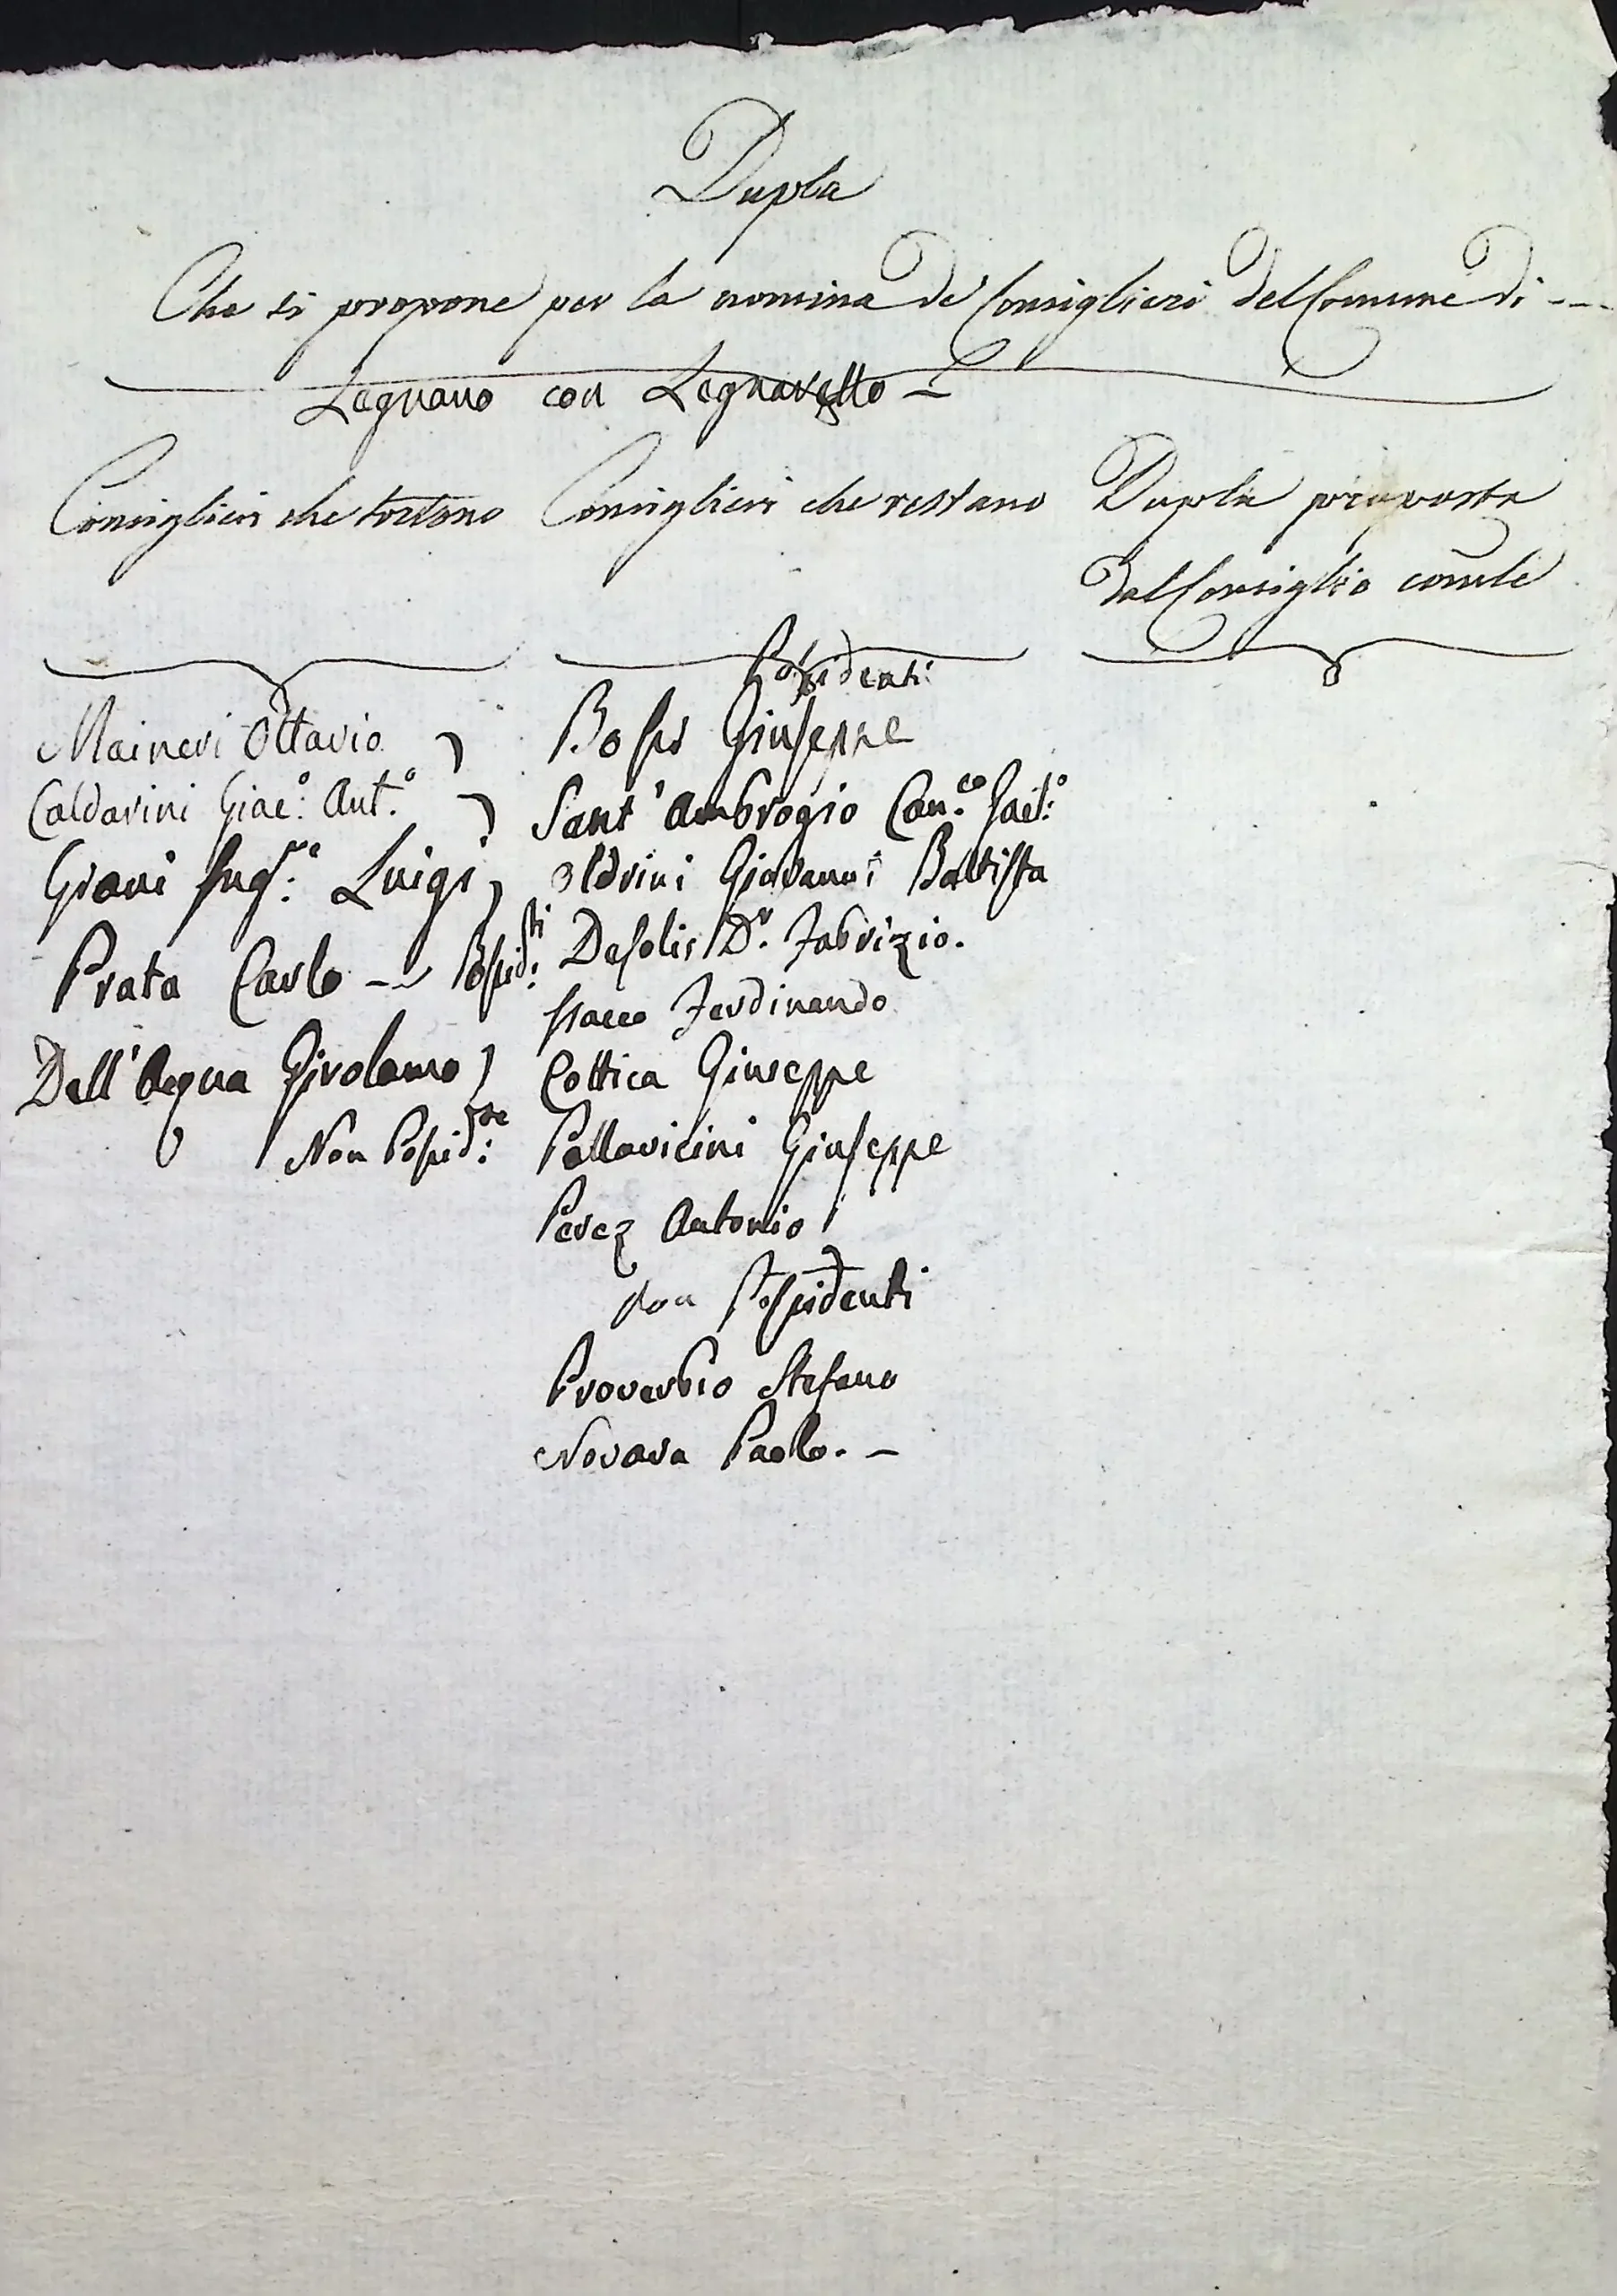 Dupla
Che si propone per la nomina de' Consiglieri del Comune di ---
Legnano con Legnarello -
Consiglieri che sortono
Consiglieri che restano
Dupla proposta
dal Consiglio comle
Maineri Ottavio
Caldarini Giac.o Ant.o
Giani Ing.re Luigi
Prata Carlo -- Possid.ti
Dell'Acqua Girolamo
Non Possid.te
Possidenti
Bossi Giuseppe
Sant'Ambrogio Can.co Gaet.o
Oldrini Giovanni Battista
Desolis D.r Fabrizio.
Ferdinando
Cottica Giuseppe
Pallavicini Giuseppe
Perez Antonio
Non Possidenti
Proverbio Stefano
Novara Paolo. -